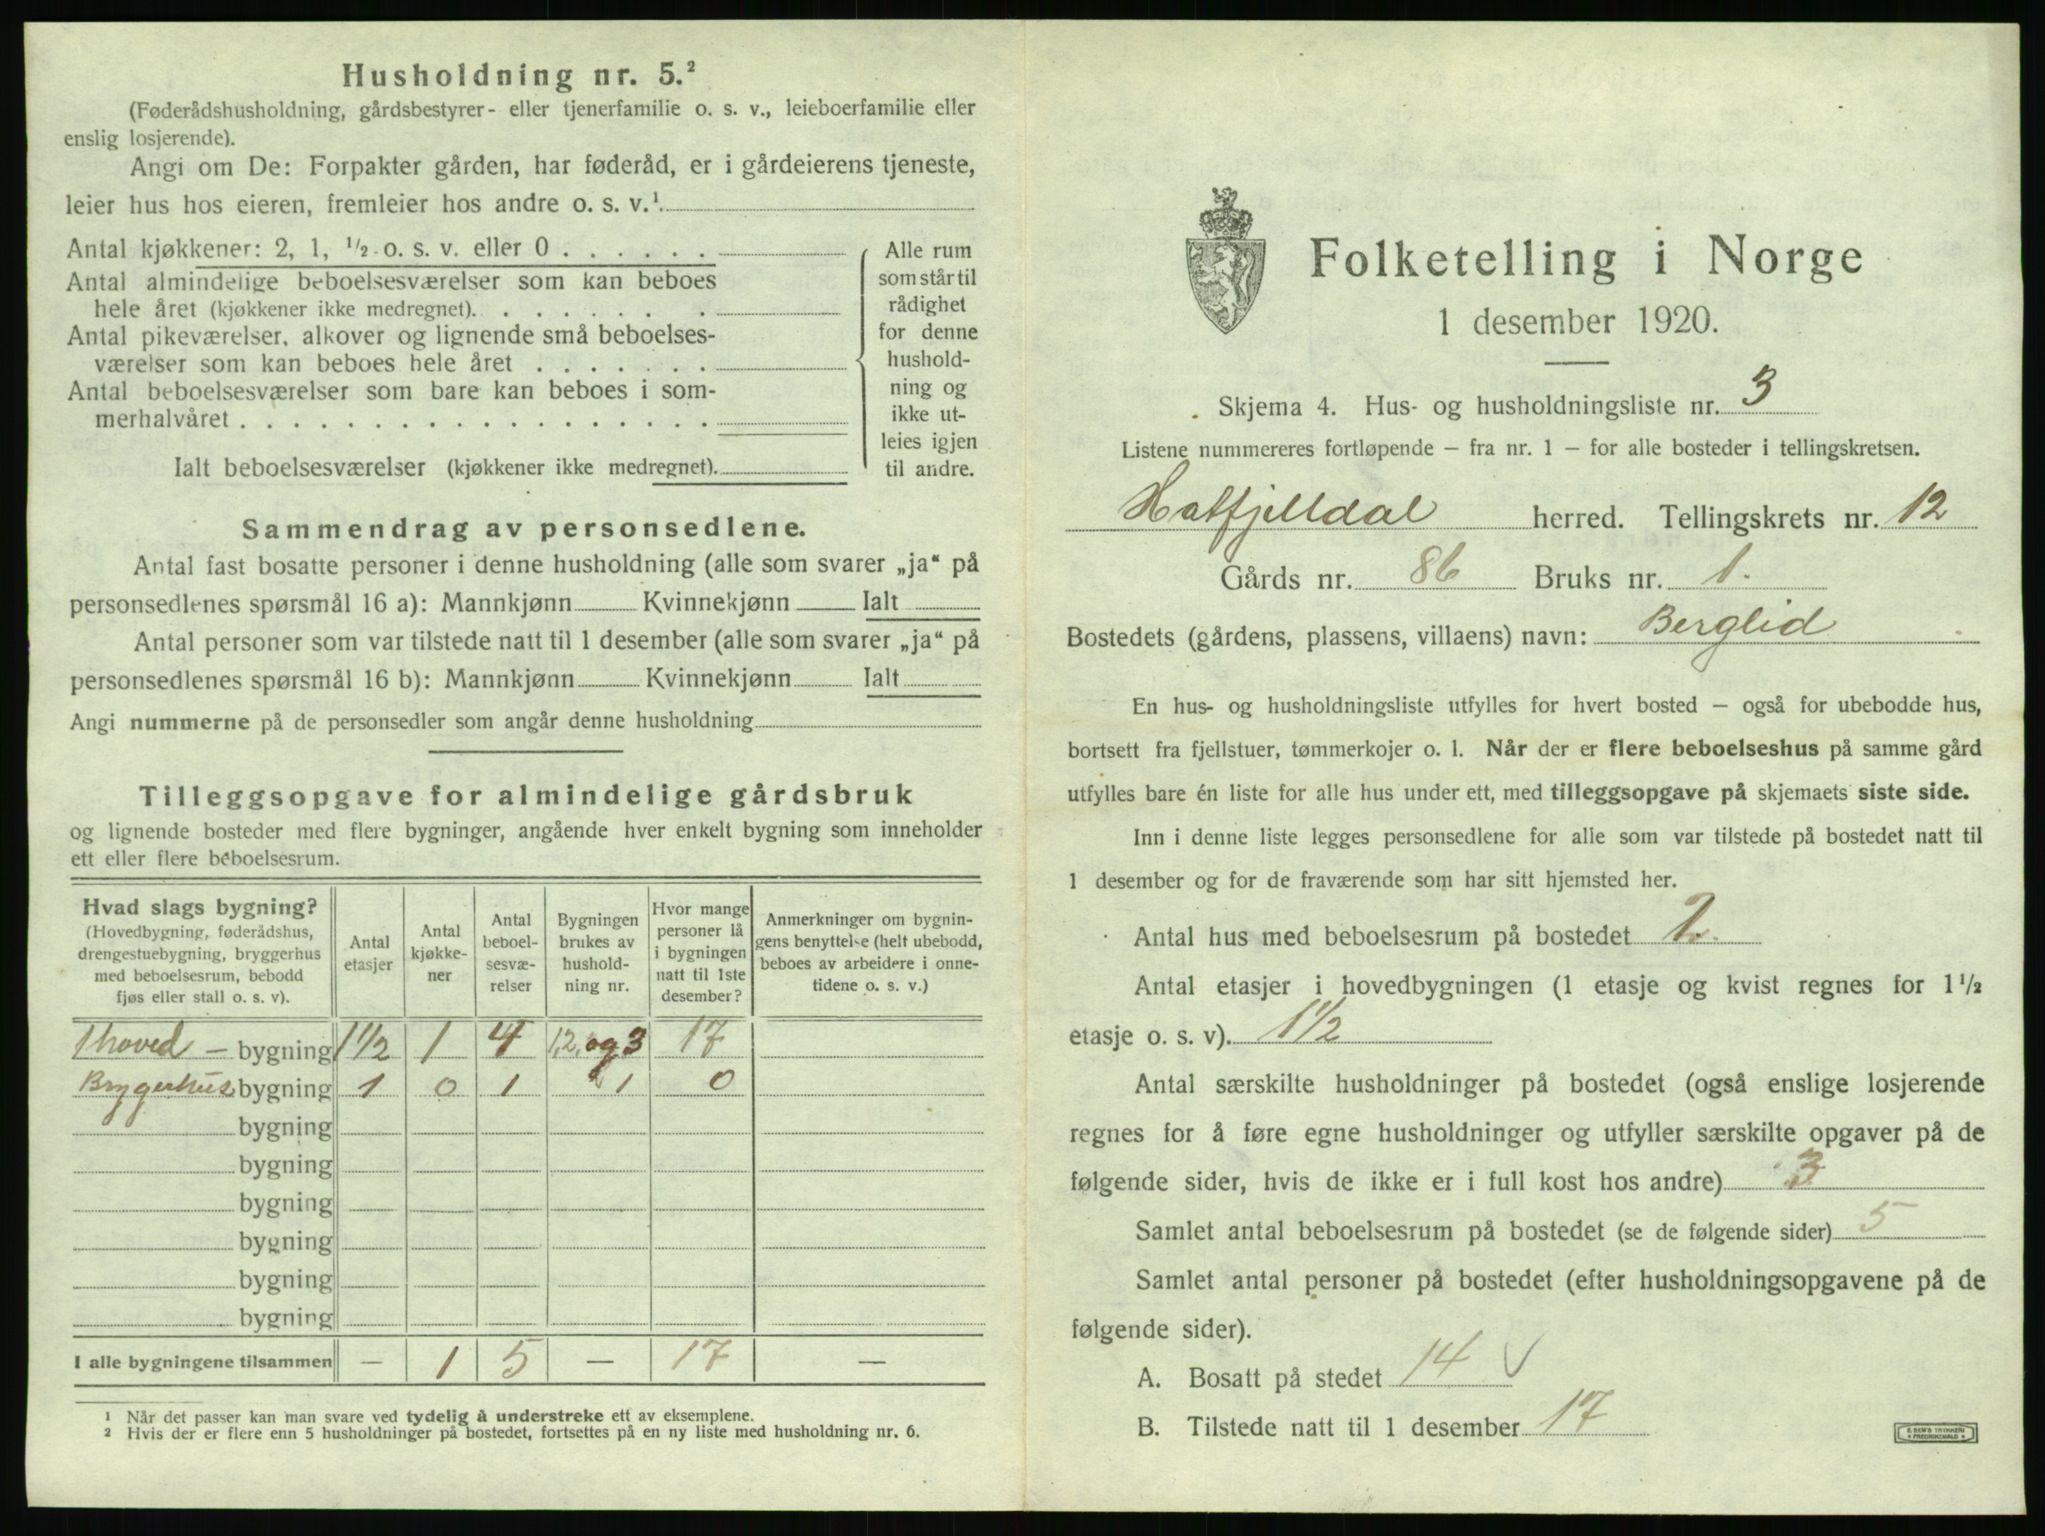 Husholdning nr. 5.²
(Føderådshusholdning, gårdsbestyrer- eller tjenerfamilie o. s. v., leieboerfamilie eller
enslig losjerende).
Angi om De: Forpakter gården, har føderåd, er i gårdeierens tjeneste,
leier hus hos eieren, fremleier hos andre o. s. v.¹
Antal kjøkkener: 2, 1, ½ o. s. v. eller 0 . . . . . .
Antal almindelige beboelsesværelser som kan beboes
hele året (kjøkkener ikke medregnet). . . . . . . .
Antal pikeværelser, alkover og lignende små beboelses-
værelser som kan beboes hele året . . . . . . .
Antal beboelsesværelser som bare kan beboes i som-
merhalvåret . . . . . . . . . . . . . . . . . .
Ialt beboelsesværelser (kjøkkener ikke medregnet).
Alle rum
som står til
rådighet
for denne
hushold-
ning og
ikke ut-
leies igjen
til andre.
Sammendrag av personsedlene.
Antal fast bosatte personer i denne husholdning (alle som svarer „ja“ på
personsedlenes spørsmål 16 a): Mannkjønn Kvinnekjønn Ialt
Antal personer som var tilstede natt til 1 desember (alle som svarer „ja“ på
personsedlenes spørsmål 16 b): Mannkjønn Kvinnekjønn Ialt
Angi nummerne på de personsedler som angår denne husholdning
Tilleggsopgave for almindelige gårdsbruk
og lignende bosteder med flere bygninger, angående hver enkelt bygning som inneholder
ett eller flere beboelsesrum.
Hvad slags bygning?
(Hovedbygning, føderådshus,
drengestuebygning, bryggerhus
med beboelsesrum, bebodd
fjøs eller stall o. s. v).
Antal
etasjer
Antal
kjøkke-
ner
Antal
beboel-
sesvæ-
relser
Bygningen
brukes av
hushold-
ning nr.
Hvor mange
personer lå
i bygningen
natt til 1ste
desember?
Anmerkninger om bygnin-
gens benyttelse (helt ubebodd,
beboes av arbeidere i onne-
tidene o. s. v.)
1 hoved - bygning 1½ 1 4 1,2, og 3 17
Brygerhus bygning 1 0 1 1 0
bygning
bygning
bygning
bygning
bygning
bygning
I alle bygningene tilsammen — 1 5 — 17 —
¹ Når det passer kan man svare ved tydelig å understreke ett av eksemplene.
² Hvis der er flere enn 5 husholdninger på bostedet, fortsettes på en ny liste med husholdning nr. 6.
Folketelling i Norge
1 desember 1920.
Skjema 4. Hus- og husholdningsliste nr. 3
Listene nummereres fortløpende – fra nr. 1 – for alle bosteder i tellingskretsen.
Hatfjelldal herred. Tellingskrets nr. 12
Gårds nr. 86 Bruks nr. 1.
Bostedets (gårdens, plassens, villaens) navn: Berglid
En hus- og husholdningsliste utfylles for hvert bosted – også for ubebodde hus,
bortsett fra fjellstuer, tømmerkojer o. l. Når der er flere beboelseshus på samme gård
utfylles bare én liste for alle hus under ett, med tilleggsopgave på skjemaets siste side.
Inn i denne liste legges personsedlene for alle som var tilstede på bostedet natt til
1 desember og for de fraværende som har sitt hjemsted her.
Antal hus med beboelsesrum på bostedet 2.
Antal etasjer i hovedbygningen (1 etasje og kvist regnes for 1½
etasje o. s. v). 1½
Antal særskilte husholdninger på bostedet (også enslige losjerende
regnes for å føre egne husholdninger og utfyller særskilte opgaver på de
følgende sider, hvis de ikke er i full kost hos andre) 3
Samlet antal beboelsesrum på bostedet (se de følgende sider) 5
Samlet antal personer på bostedet (efter husholdningsopgavene på de
følgende sider).
A. Bosatt på stedet 14 √
B. Tilstede natt til 1 desember 17